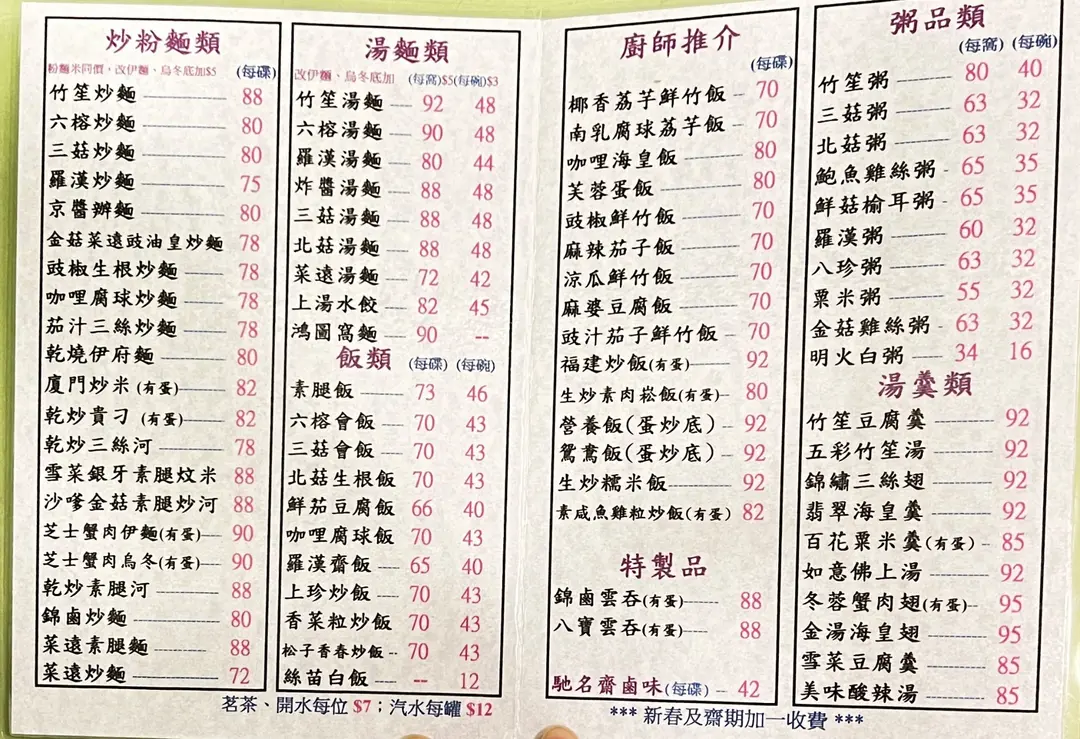 炒粉麵類
粉麵米同價，改伊麵、烏冬底加$5 (每碟)
竹笙炒麵 88
六榕炒麵 80
三菇炒麵 80
羅漢炒麵 75
京醬辦麵 80
金菇菜遠豉油皇炒麵 78
豉椒生根炒麵 78
咖哩腐球炒麵 78
茄汁三絲炒麵 78
乾燒伊府麵 80
廈門炒米(有蛋) 82
乾炒貴刁(有蛋) 82
乾炒三絲河 78
雪菜銀牙素腿炆米 88
沙嗲金菇素腿炒河 88
芝士蟹肉伊麵(有蛋) 90
芝士蟹肉烏冬(有蛋) 90
乾炒素腿河 88
錦鹵炒麵 80
菜遠素腿麵 88
菜遠炒麵 72
湯麵類
改伊麵、烏冬底加 (每窩)$5(每碗)$3
竹笙湯麵 92 48
六榕湯麵 90 48
羅漢湯麵 80 44
炸醬湯麵 88 48
三菇湯麵 88 48
北菇湯麵 88 48
菜遠湯麵 72 42
上湯水餃 82 45
鴻圖窩麵 90 --
飯類 (每碟) (每碗)
素腿飯 73 46
六榕會飯 70 43
三菇會飯 70 43
北菇生根飯 70 43
鮮茄豆腐飯 66 40
咖哩腐球飯 70 43
羅漢齋飯 65 40
上珍炒飯 70 43
香菜粒炒飯 70 43
松子香春炒飯 -- 70 43
絲苗白飯 -- 12
茗茶、開水每位 $7；汽水每罐 $12
廚師推介
(每碟)
椰香荔芋鮮竹飯 70
南乳腐球荔芋飯 70
咖哩海皇飯 80
芙蓉蛋飯 80
豉椒鮮竹飯 70
麻辣茄子飯 70
涼瓜鮮竹飯 70
麻婆豆腐飯 70
豉汁茄子鮮竹飯 70
福建炒飯(有蛋) 92
生炒素肉崧飯(有蛋) 80
營養飯(蛋炒底) 92
鴛鴦飯(蛋炒底) 92
生炒糯米飯 92
素咸魚雞粒炒飯(有蛋) 82
特製品
錦鹵雲吞(有蛋) 88
八寶雲吞(有蛋) 88
馳名齋鹵味(每碟) 42
粥品類
(每窩) (每碗)
竹笙粥 80 40
三菇粥 63 32
北菇粥 63 32
鮑魚雞絲粥 65 35
鮮菇榆耳粥 65 35
羅漢粥 60 32
八珍粥 63 32
粟米粥 55 32
金菇雞絲粥 63 32
明火白粥 34 16
湯羹類
竹笙豆腐羹 92
五彩竹笙湯 92
錦繡三絲翅 92
翡翠海皇羹 92
百花粟米羹(有蛋) 85
如意佛上湯 92
冬蓉蟹肉翅(有蛋) 95
金湯海皇翅 95
雪菜豆腐羹 85
美味酸辣湯 85
*** 新春及齋期加一收費 ***